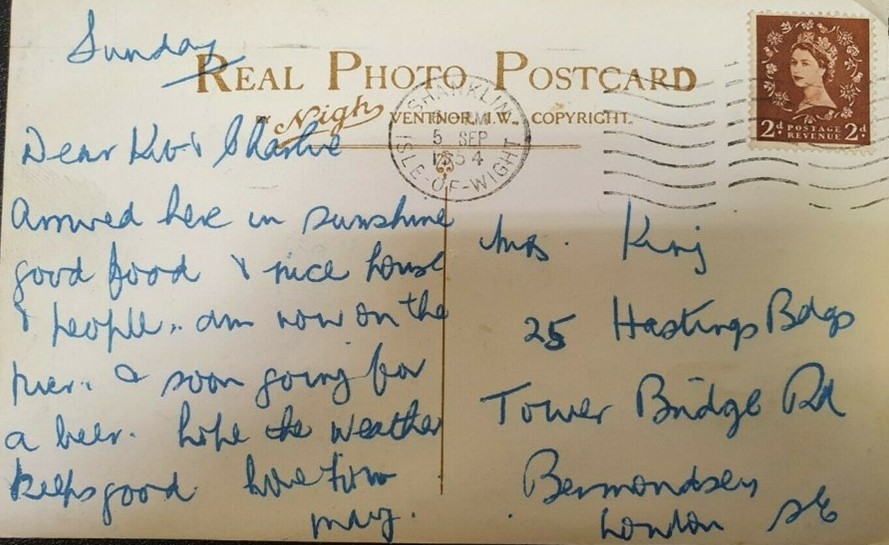 Sunday
REAL PHOTO POSTCARD
Nigh VENTNOR, I.W., COPYRIGHT.
SHANKLIN
5 SEP
1954
ISLE-OF-WIGHT
2d POSTAGE REVENUE 2d
Dear & Charlie
Arrived here in sunshine
good food & nice house
& people.. am now on the
pier. & soon going for
a beer. hope the weather
keeps good. love from
May.
Mrs. King
25 Hastings Bdgs
Tower Bridge Rd
Bermondsey
London SE